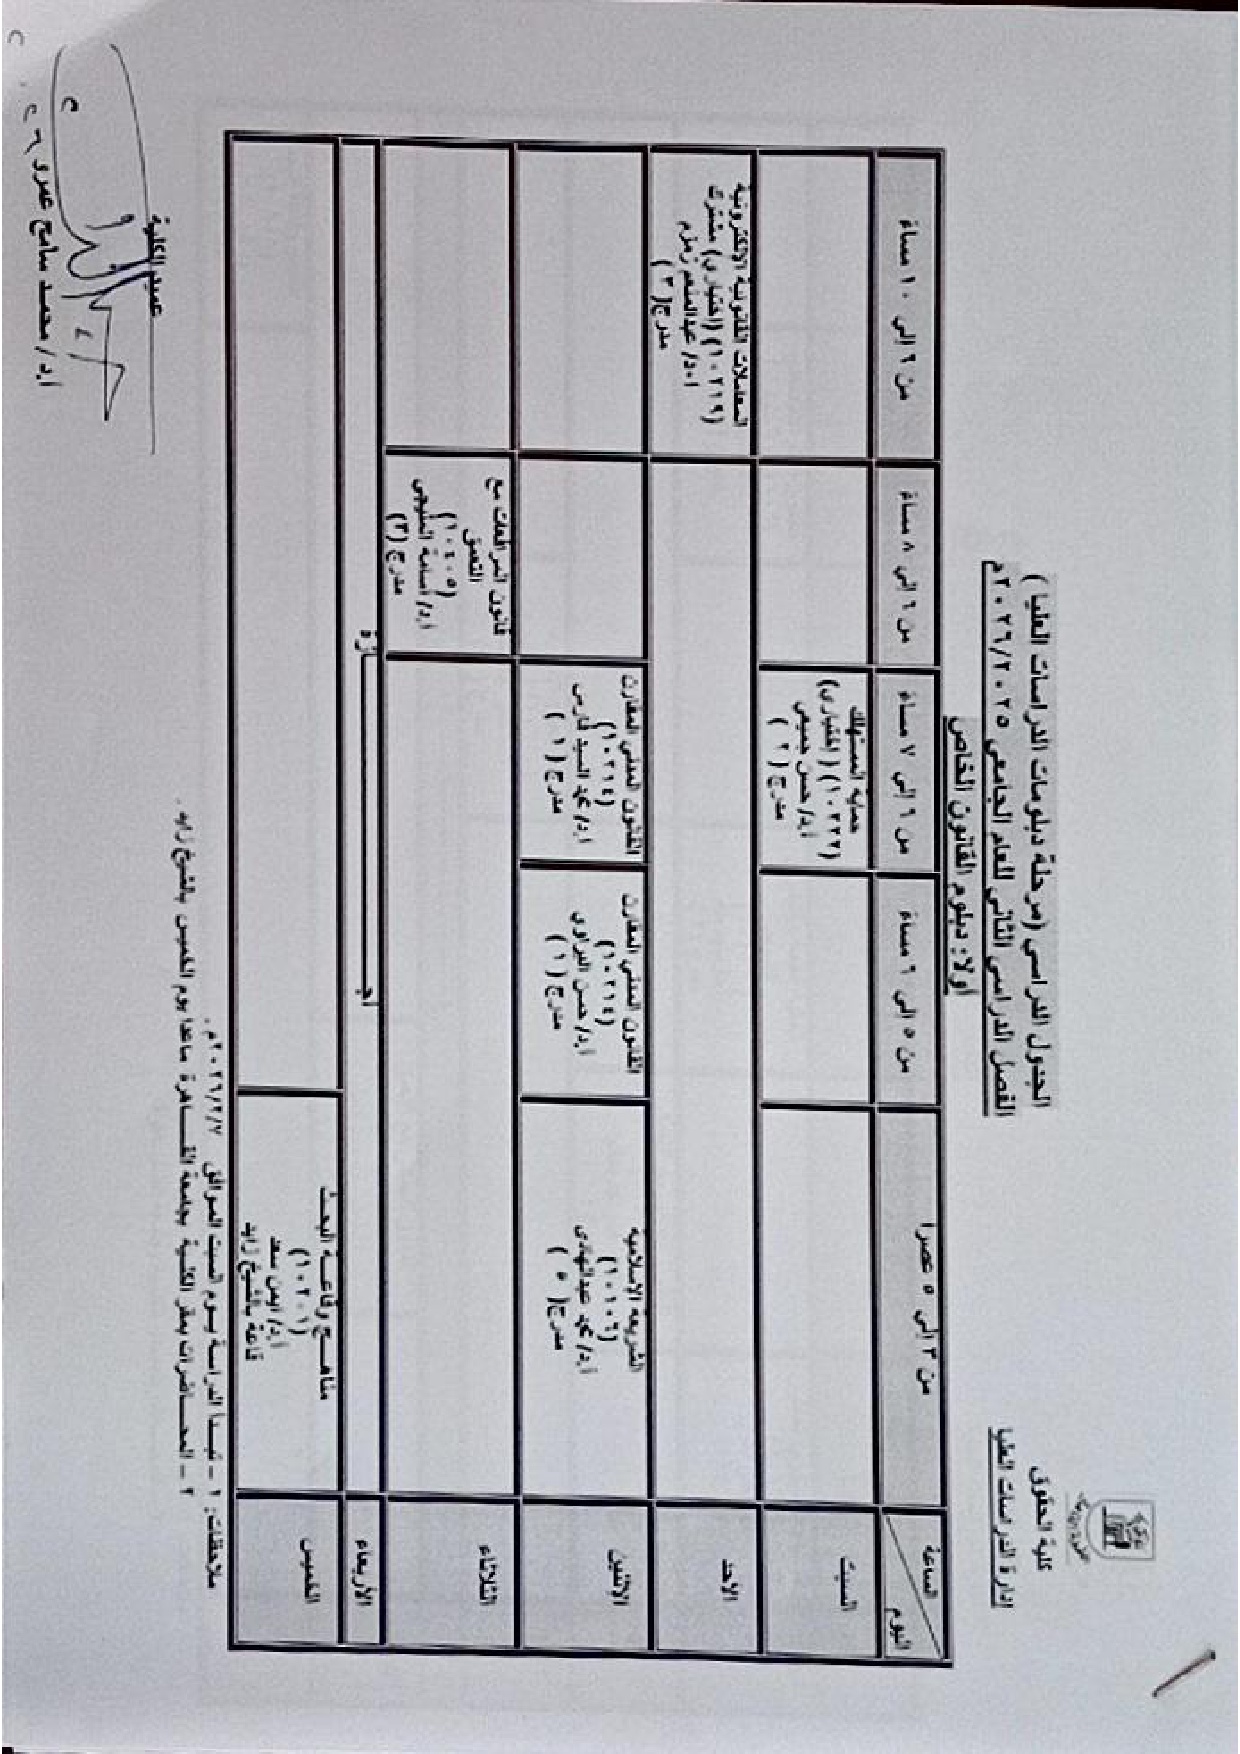 كلية الحقوق
إدارة الدراسات العليا
الجدول الدراسي (مرحلة دبلومات الدراسات العليا)
الفصل الدراسي الثاني للعام الجامعي ٢٠٢٦/٢٠٢٥م
أولا: دبلوم القانون الخاص
الساعة
اليوم
من ٣ إلى ٥ عصرا
من ٥ إلى ٦ مساءً
من ٦ إلى ٧ مساءً
من ٦ إلى ٨ مساءً
من ٦ إلى ١٠ مساءً
السبت
حماية المستهلك
(١٠٢٢٢) (اختياري)
أ.د/ حسن جميعي
مدرج (٢)
الاحد
المعاملات القانونية الالكترونية
(١٠٢١٩) (اختياري) مشترك
ا.د/ عبدالمنعم زمزم
مدرج (٣)
الإثنين
الشريعة الإسلامية
(١٠١٠٦)
أ.د/ محمد عبدالهادى
مدرج (٥)
القانون المدنى المقارن
(١٠٢١٤)
أ.د/ حسن البراوي
مدرج (١)
القانون المدنى المقارن
(١٠٢١٤)
أ.د/ محمد السيد فارس
مدرج (١)
الثلاثاء
قانون المرافعات مع
التعمق
(١٠٤٠٥)
أ.د/ أسامة المليجى
مدرج (٣)
الأربعاء
أجــــــازة
الخميس
مناهج وقاعة البحث
(١٠٢٠١)
أ.د/ أيمن سعد
قاعة بالشيخ زايد
ملاحظات: ١ – تبدأ الدراسة يوم السبت الموافق ٢٠٢٦/٢/٧م.
٢ – المحاضرات بمقر الكلية بجامعة القاهرة ماعدا يوم الخميس بالشيخ زايد.
عميد الكلية
أ.د/ محمد سامح عمرو